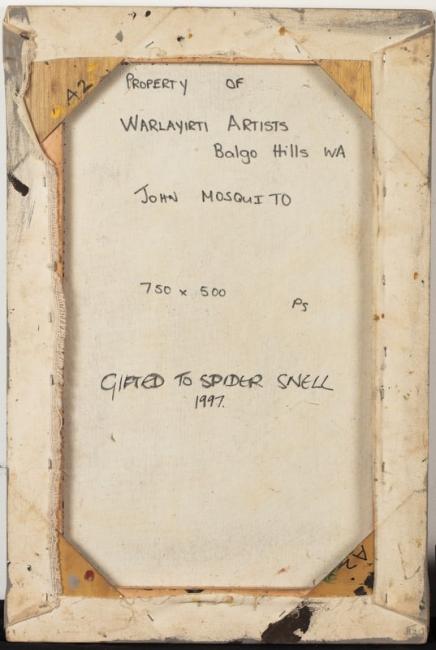 A2
PROPERTY OF
WARLAYIRTI ARTISTS
Balgo Hills WA
JOHN MOSQUITO
750 x 500
Ps
GIFTED TO SPIDER SNELL
1997.
A2